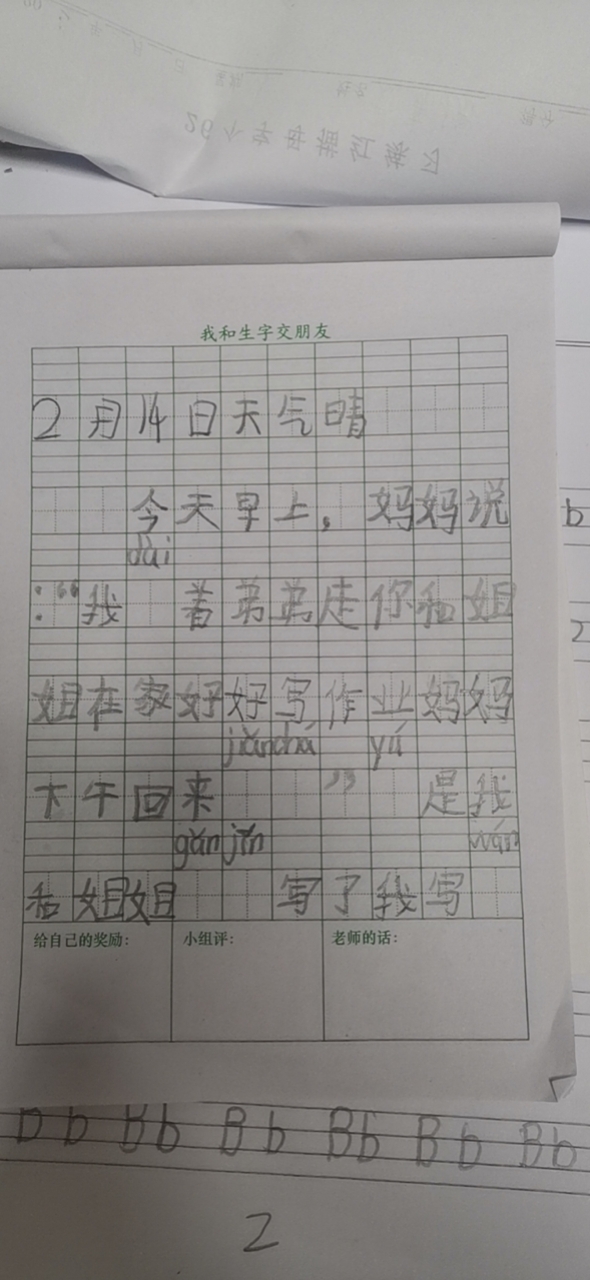 26个字母描红练习
我和生字交朋友
2月14日天气晴
今天早上，妈妈说
dài
：“我 着弟弟走你和姐
姐在家好好写作业妈妈
jiǎnchá yú
下午回来 ” 是我
gǎn jǐn wán
和姐姐 写了我写
给自己的奖励： 小组评： 老师的话：
b
2
B b B b B b B b B b B b
2